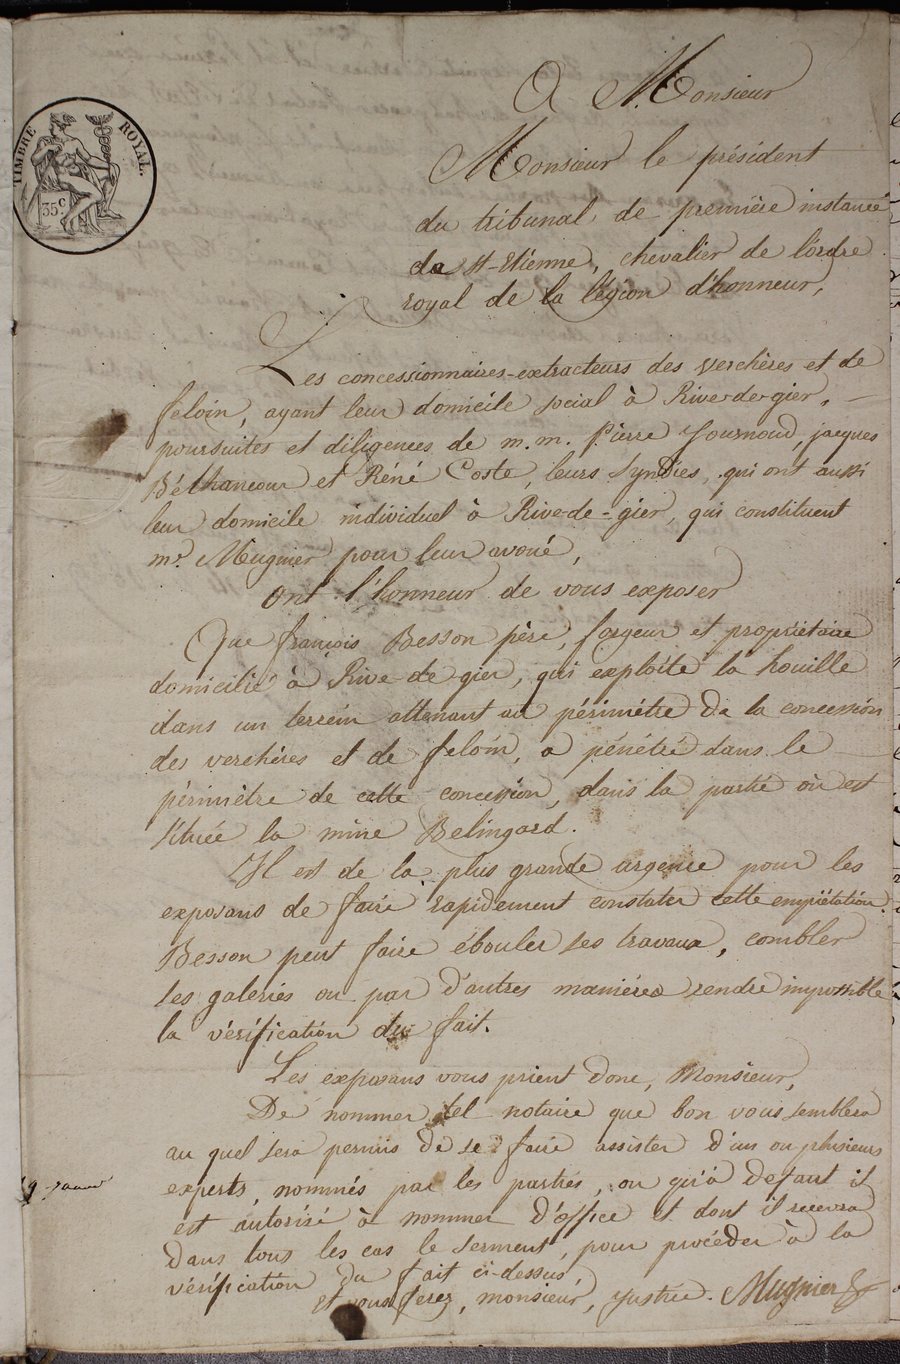 TIMBRE ROYAL.
35c
A Monsieur
Monsieur le président
du tribunal de première instance
de St-Etienne, chevalier de l'ordre
royal de la légion d'honneur,
Les concessionnaires-extracteurs des verchères et de
feloin, ayant leur domicile social à Rive-de-gier,
poursuites et diligences de m.m. Pierre Journoud, jacques
Béthaneour et Réné Coste, leurs Syndics, qui ont aussi
leur domicile individuel à Rive-de-gier, qui constituent
mr. Mugnier pour leur avoué,
Ont l'honneur de vous exposer
Que françois Besson père, forgeur et propriétaire
domicilié à Rive-de-gier, qui exploite la houille
dans un terrein attenant au périmètre de la concession
des verchères et de feloin, a pénétré dans le
périmètre de cette concession, dans la partie où est
située la mine Belingard.
Il est de la plus grande urgence pour les
exposans de faire rapidement constater cette empiétation.
Besson peut faire ébouler ses travaux, combler
les galeries ou par d'autres manières rendre impossible
la vérification du fait.
Les exposans vous prient donc, Monsieur,
De nommer tel notaire que bon vous semblera
au quel sera permis de se faire assister d'un ou plusieurs
experts, nommés par les parties, ou qu'à defaut il
est autorisé à nommer d'office et dont il recevra
dans tous les cas le serment, pour procéder à la
vérification du fait ci-dessus,
et vous ferez, monsieur, justice. Mugnier